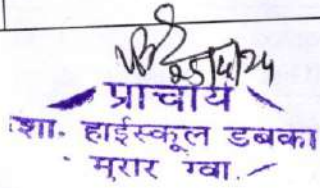 25/4/24
प्राचार्य
शा. हाईस्कूल डबका
मुरार ग्वा.